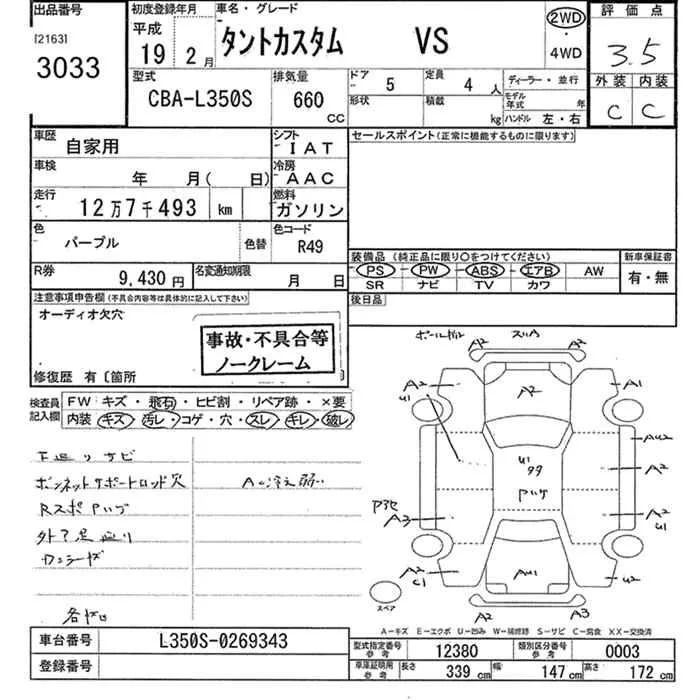 出品番号
[2163]
3033
初度登録年月
平成
19 2月
車名・グレード
タントカスタム VS
2WD
・
4WD
評価点
3.5
外装 内装
C C
型式
CBA-L350S
排気量
660
CC
ドア
5
形状
定員
4人
積載
kg
ディーラー・並行
モデル年式 年
ハンドル 左・右
車歴
自家用
シフト
IAT
車検
年 月( 日)
冷房
AAC
走行
12万7千493 km
燃料
ガソリン
色
パープル
色替
色コード
R49
R券
9,430円
名変通知期限
月 日
セールスポイント(正常に機能するものに限ります)
装備品(純正品に限り〇をつけてください)
PS PW ABS エアB AW
SR ナビ TV カワ
新車保証書
有・無
後日品
注意事項申告欄(不具合内容等は具体的に記入して下さい)
オーディオ欠穴
事故・不具合等
ノークレーム
修復歴 有〔箇所
検査員
記入欄
FW キズ・飛石・ヒビ割・リペア跡・×要
内装 キズ・汚レ・コゲ・穴・スレ・キレ・破レ
下廻りサビ
ボンネットサポートロッド欠
A/C冷え弱い
RスポPハゲ
外ア足廻り
各ヤレ
A2 A2
A2 A1
U1
A2
AU2
U1
A2
Pハゲ
A3
A2
U1
A2
C1
AU1
U2
A2 A3
スペア
A-キズ E-エクボ U-凹み W-補修跡 S-サビ C-腐食 XX-交換済
車台番号
L350S-0269343
登録番号
型式指定番号
参考
12380
類別区分番号
参考
0003
車庫証明用
参考
長さ
339cm
幅
147cm
高さ
172cm